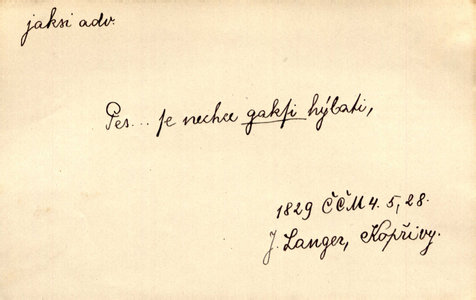 jaksi adv.
Pes... se nechce gaksi hýbati,
1829 ČČM 4. 5, 28.
J. Langer, Kopřivy.